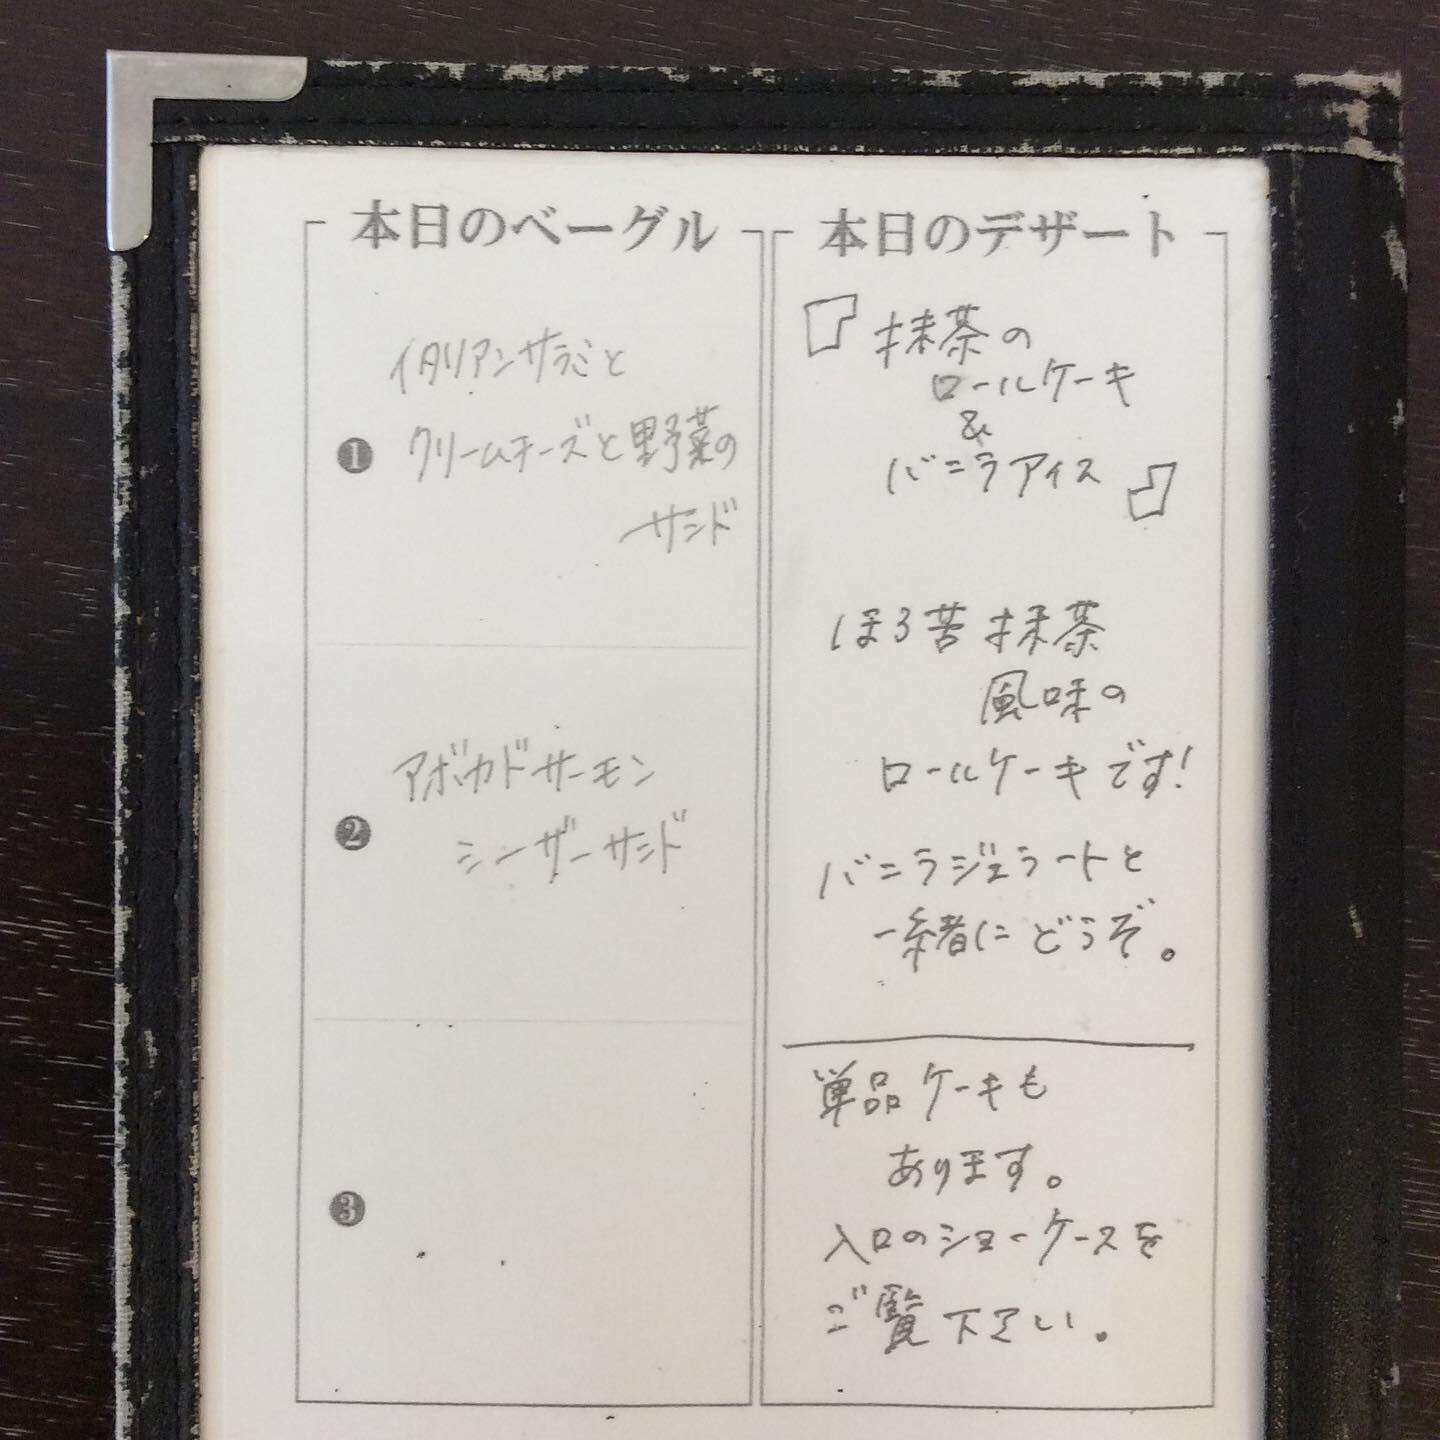 本日のベーグル
イタリアンサラミと
❶ クリームチーズと野菜の
サンド
❷ アボカドサーモン
シーザーサンド
❸
本日のデザート
『抹茶の
ロールケーキ
&
バニラアイス』
ほろ苦抹茶
風味の
ロールケーキです!
バニラジェラートと
一緒にどうぞ。
単品ケーキも
あります。
入口のショーケースを
ご覧下さい。